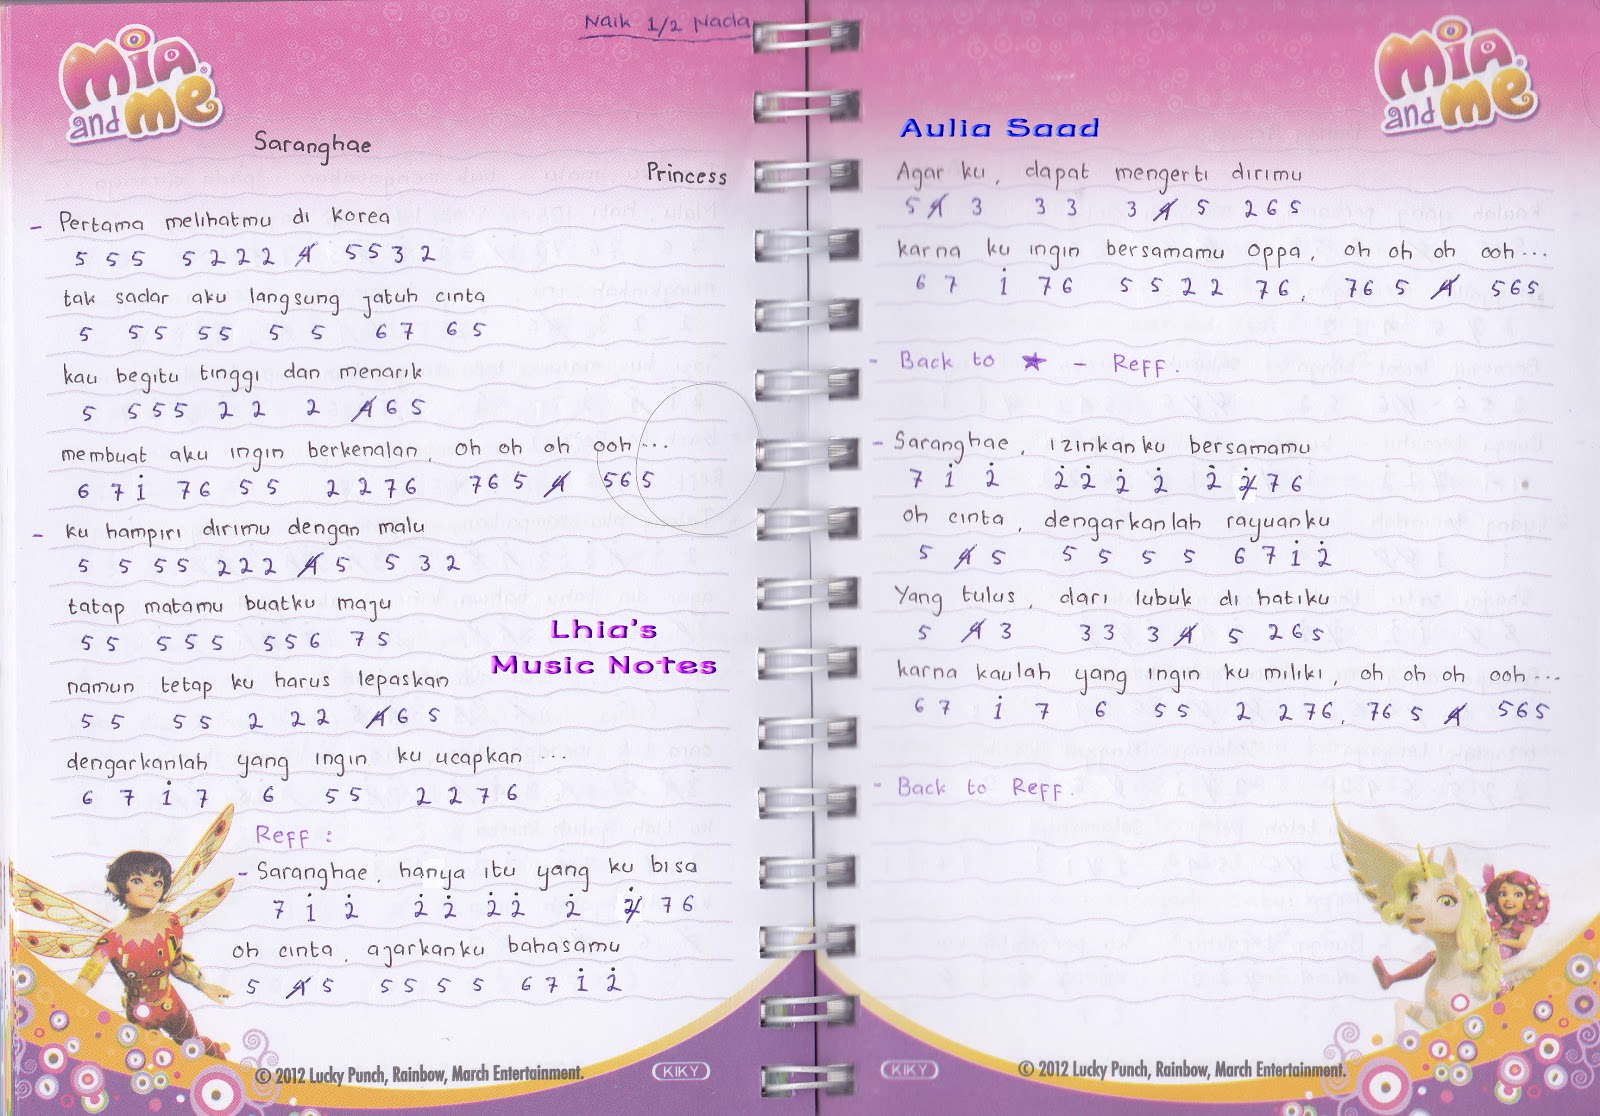 Naik 1/2 Nada
Mia and me
Saranghae
Princess
- Pertama melihatmu di korea
5 5 5 5 2 2 2 4̸ 5 5 3 2
tak sadar aku langsung jatuh cinta
5 5 5 5 5 5 5 6 7 6 5
kau begitu tinggi dan menarik
5 5 5 5 2 2 2 4̸ 6 5
membuat aku ingin berkenalan, oh oh oh ooh...
6 7 1̇ 7 6 5 5 2 2 7 6 7 6 5 4̸ 5 6 5
- ku hampiri dirimu dengan malu
5 5 5 5 2 2 2 4̸ 5 5 3 2
tatap matamu buatku maju
5 5 5 5 5 5 5 6 7 5
Lhia's
Music Notes
namun tetap ku harus lepaskan
5 5 5 5 2 2 2 4̸ 6 5
dengarkanlah yang ingin ku ucapkan ...
6 7 1̇ 7 6 5 5 2 2 7 6
Reff :
- Saranghae, hanya itu yang ku bisa
7 1̇ 2̇ 2̇ 2̇ 2̇ 2̇ 2̇ 2̸̇ 7 6
oh cinta, ajarkanku bahasamu
5 4̸ 5 5 5 5 5 6 7 1̇ 2̇
© 2012 Lucky Punch, Rainbow, March Entertainment.
KIKY
Mia and me
Aulia Saad
Agar ku, dapat mengerti dirimu
5 4̸ 3 3 3 3 4̸ 5 2 6 5
karna ku ingin bersamamu oppa, oh oh oh ooh...
6 7 1̇ 7 6 5 5 2 2 7 6, 7 6 5 4̸ 5 6 5
- Back to ★ - Reff.
- Saranghae, izinkanku bersamamu
7 1̇ 2̇ 2̇ 2̇ 2̇ 2̇ 2̇ 2̸̇ 7 6
oh cinta, dengarkanlah rayuanku
5 4̸ 5 5 5 5 5 6 7 1̇ 2̇
Yang tulus, dari lubuk di hatiku
5 4̸ 3 3 3 3 4̸ 5 2 6 5
karna kaulah yang ingin ku miliki, oh oh oh ooh...
6 7 1̇ 7 6 5 5 2 2 7 6, 7 6 5 4̸ 5 6 5
- Back to Reff.
KIKY
© 2012 Lucky Punch, Rainbow, March Entertainment.